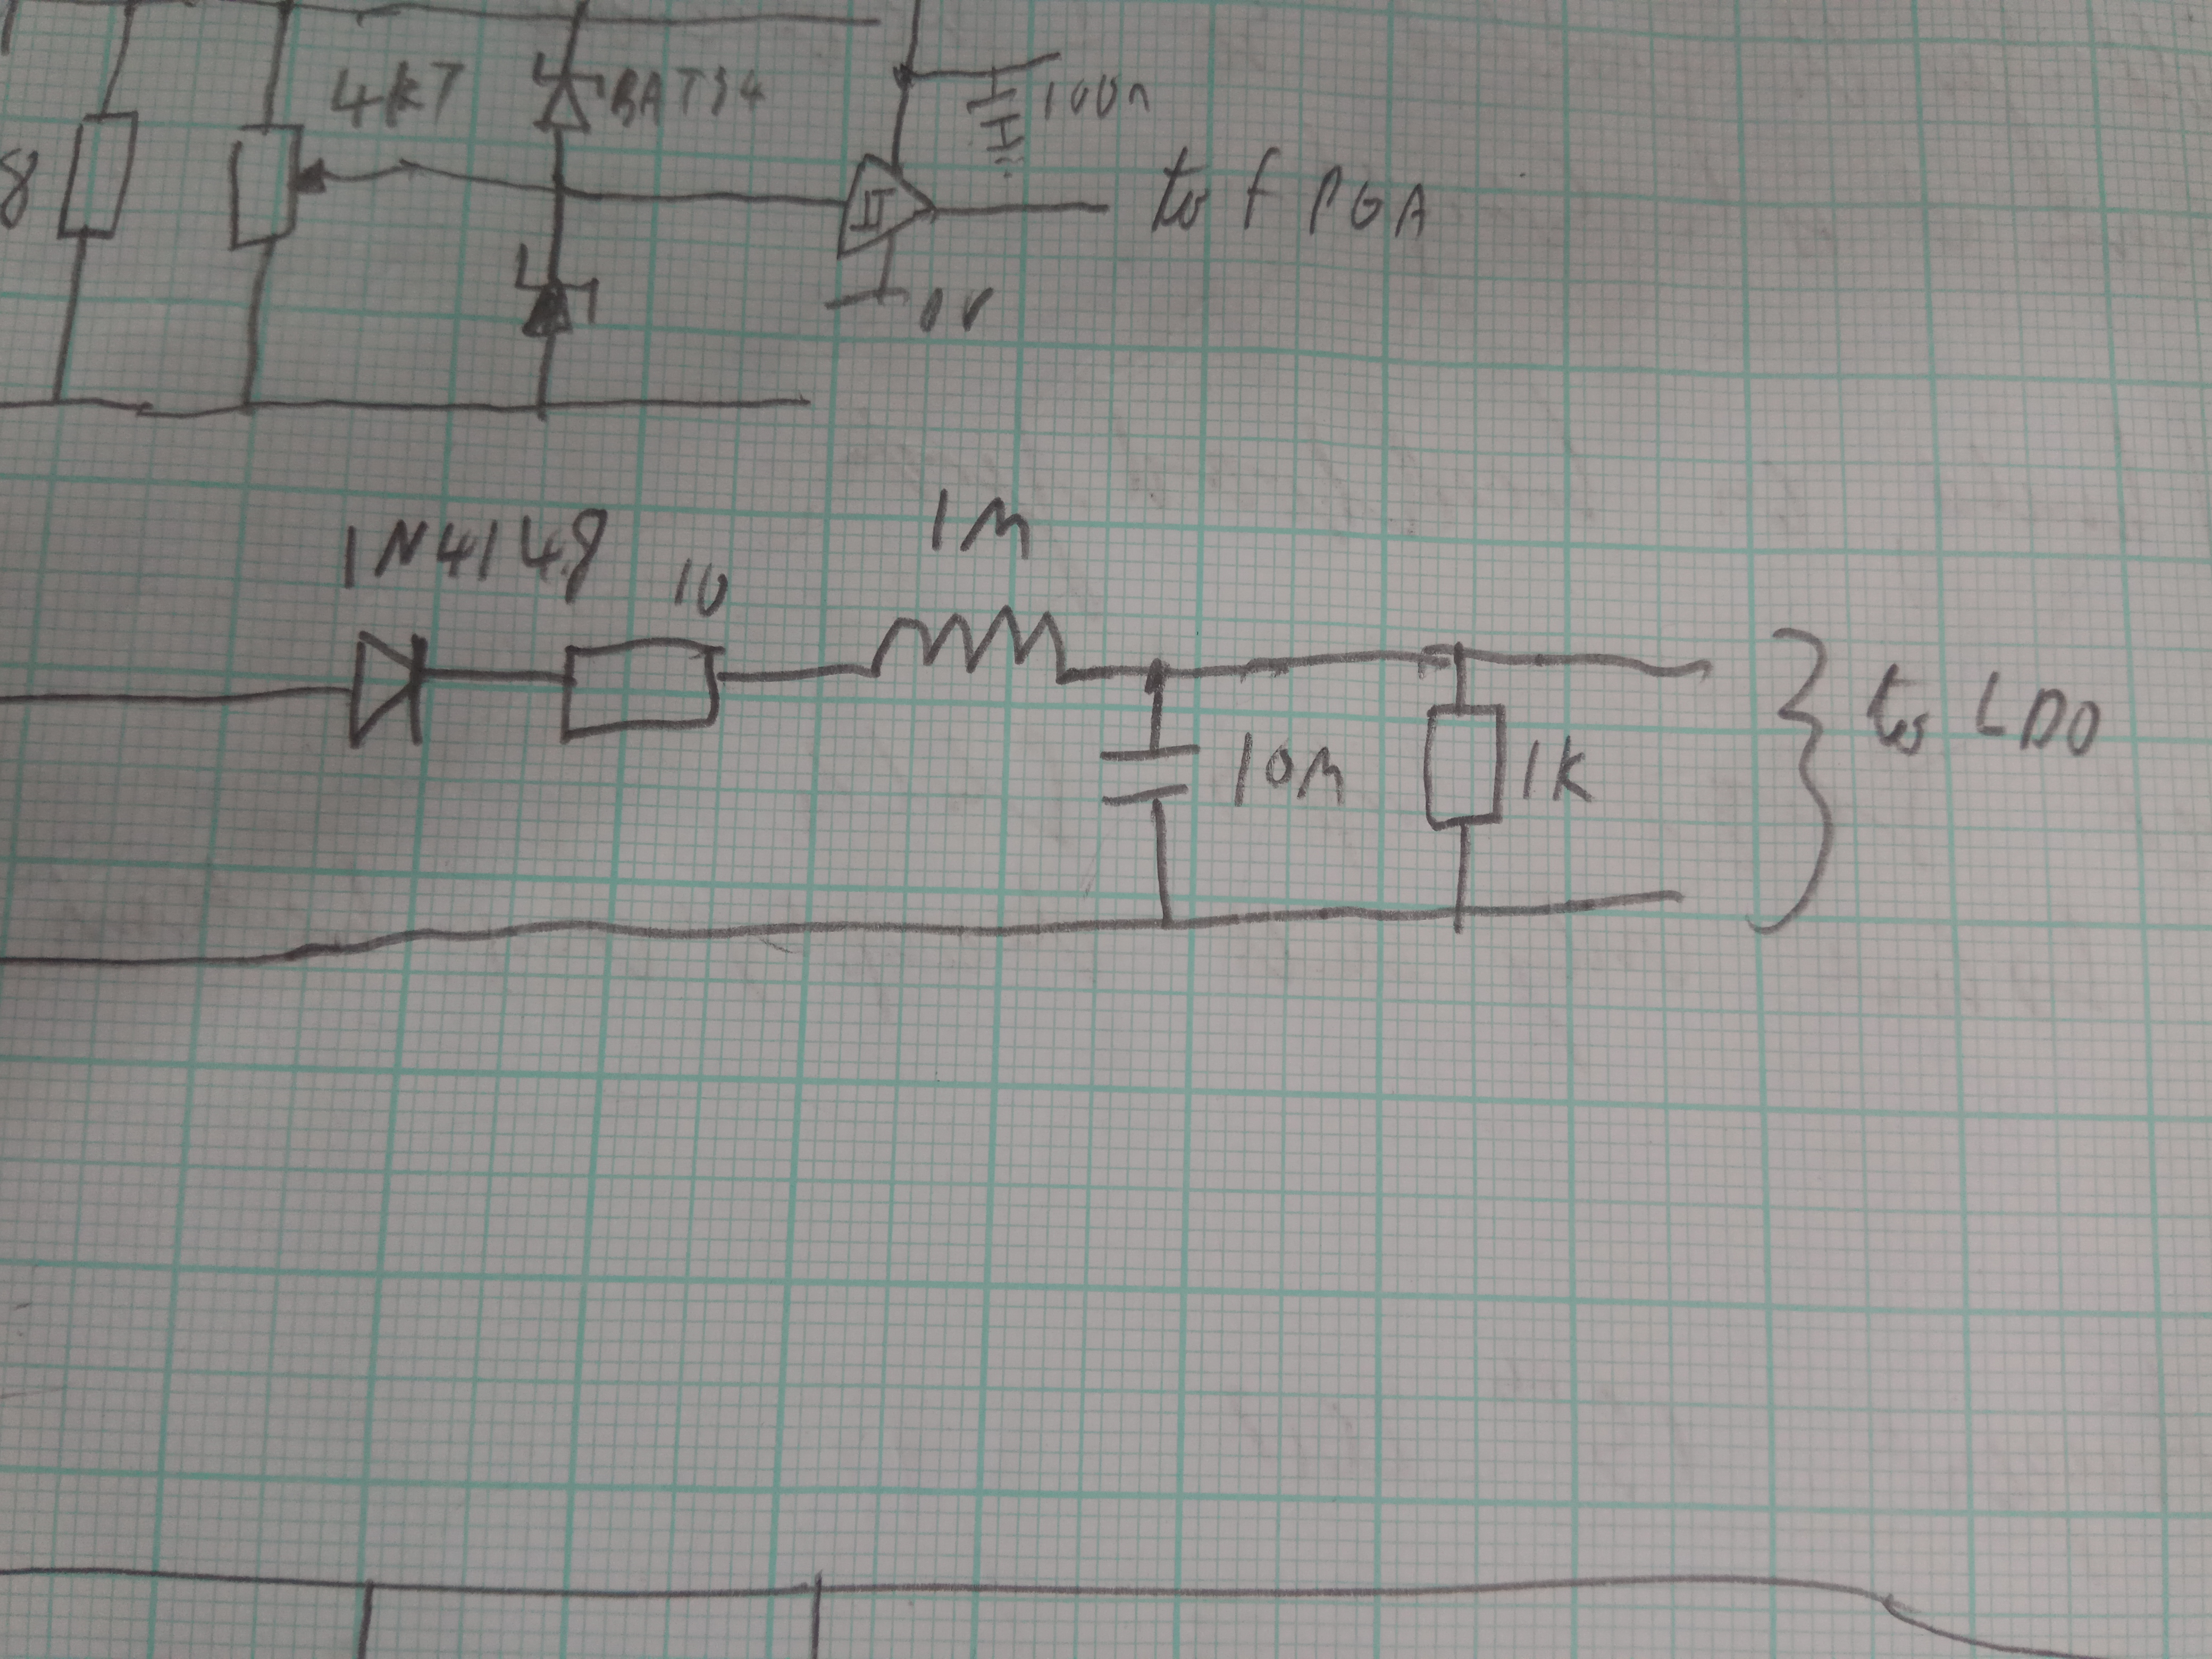 8
4k7
BAT54
100n
to FPGA
0V
1N4148
10
1M
10M
1K
to LDO